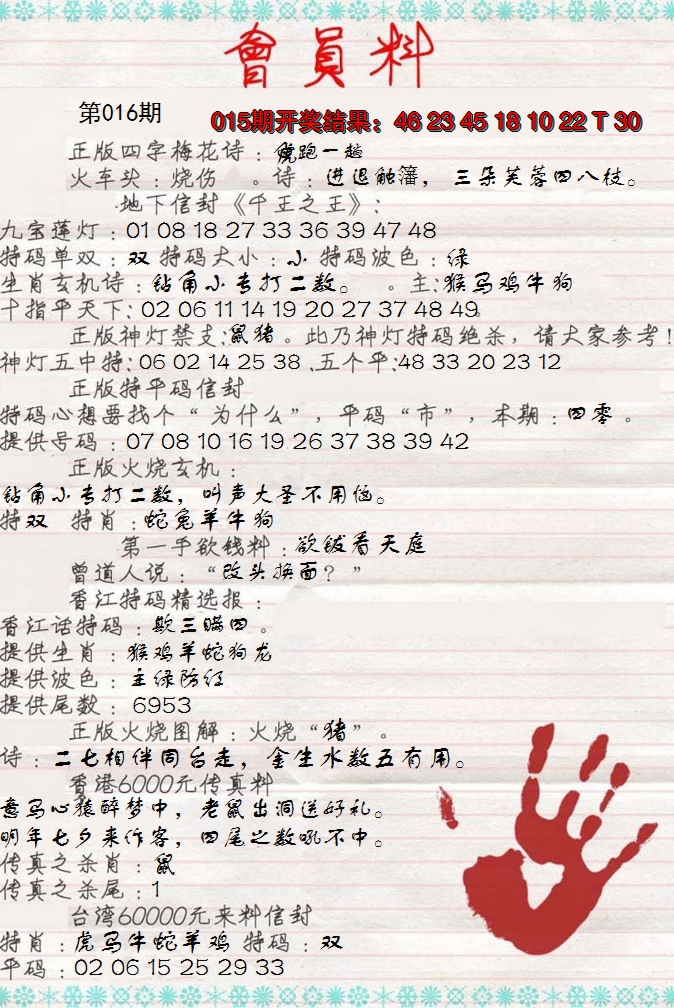 會員料
第016期
015期开奖结果：46 23 45 18 10 22 T 30
正版四字梅花诗：虎跑一趟
火车头：烧伤 。诗：进退触籓，三朵芙蓉四八枝。
地下信封《千王之王》：
九宝莲灯：01 08 18 27 33 36 39 47 48
特码单双：双 特码大小：小 特码波色：绿
生肖玄机诗：钻角小专打二数。 。主:猴马鸡牛狗
十指平天下: 02 06 11 14 19 20 27 37 48 49
正版神灯禁支:鼠猪。此乃神灯特码绝杀，请大家参考!
神灯五中特:06 02 14 25 38 .五个平:48 33 20 23 12
正版特平码信封
特码心想要找个“为什么”，平码“市”，本期：四零。
提供号码：07 08 10 16 19 26 37 38 39 42
正版火烧玄机：
钻角小专打二数，叫声大圣不用恼。
特双 特肖：蛇兔羊牛狗
第一手欲钱料：欲钱看天庭
曾道人说：“改头换面？”
香江特码精选报：
香江话特码：欺三瞒四。
提供生肖：猴鸡羊蛇狗龙
提供波色：主绿防红
提供尾数：6953
正版火烧图解：火烧“猪”。
诗：二七相伴同台走，金生水数五有用。
香港6000元传真料
意马心猿醉梦中，老鼠出洞送好礼。
明年七夕来作客，四尾之数吼不中。
传真之杀肖：鼠
传真之杀尾：1
台湾60000元来料信封
特肖：虎马牛蛇羊鸡 特码：双
平码：02 06 15 25 29 33